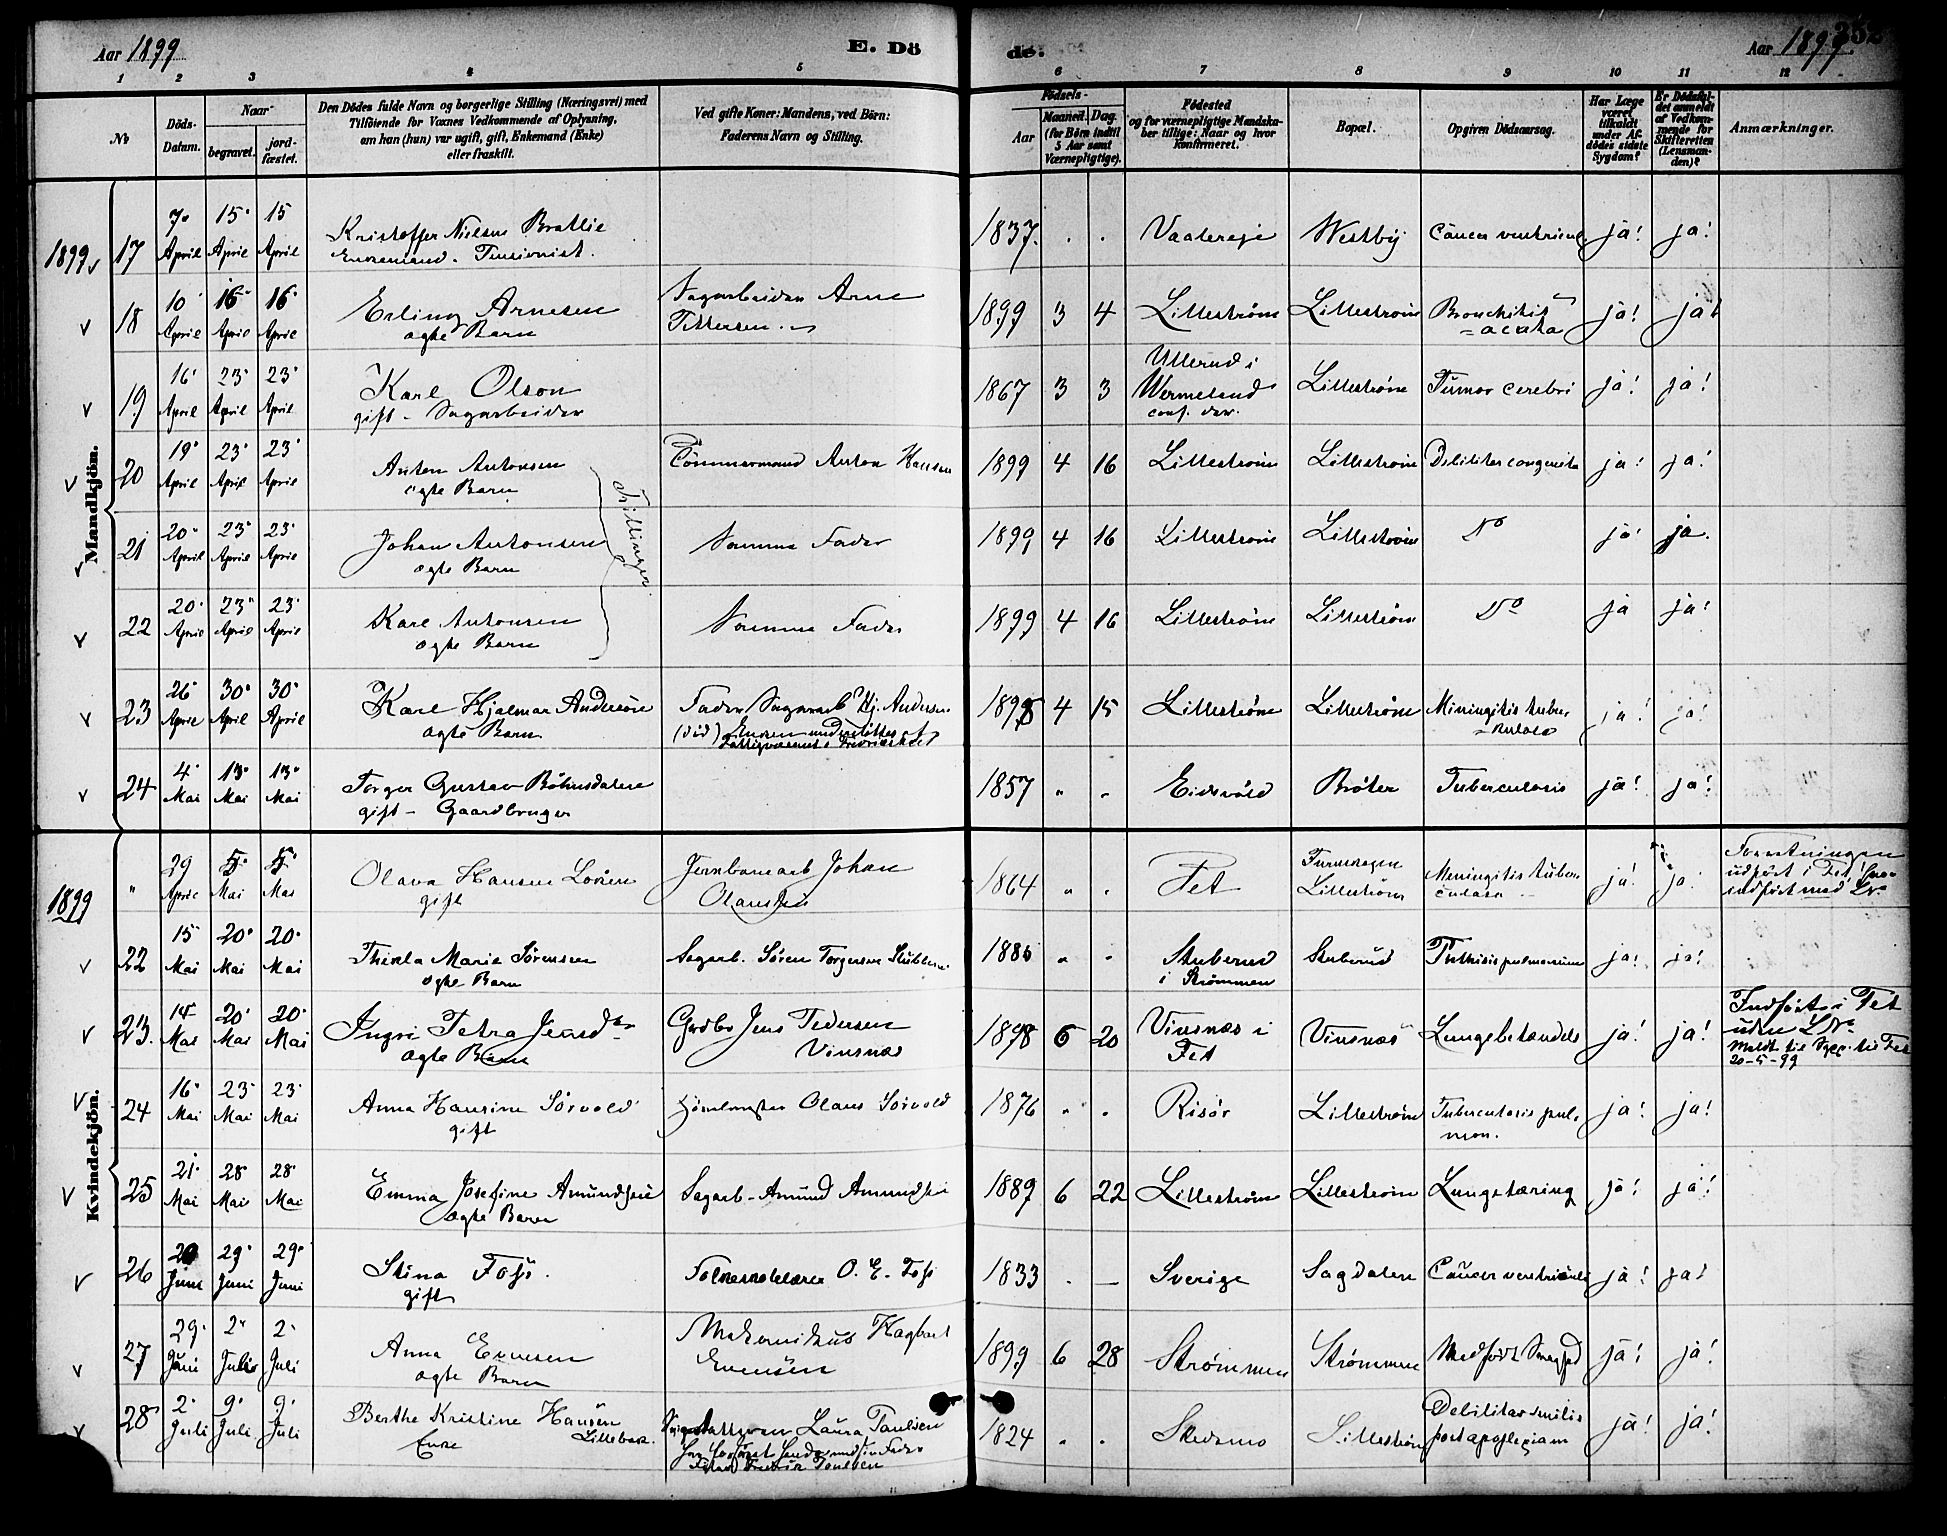 Aar 1899 E. Dö
de. Aar 1899. 352
1 2 3 4 5 6 7 8 9 10 11 12
№
Döds-Datum.
Naar
begravet.
jord-fæstet.
Den Dödes fulde Navn og borgerlige Stilling (Næringsvei) med
Tilföiende for Voxnes Vedkommende af Oplysning,
om han (hun) var ugift, gift, Enkemand (Enke)
eller fraskilt.
Ved gifte Koner: Mandens, ved Börn:
Faderens Navn og Stilling.
Födsels-
Aar
Maaned. Dag.
(for Börn indtil
5 Aar samt
Værnepligtige).
Födested
og for værnepligtige Mandska-
ber tillige: Naar og hvor
konfirmeret.
Bopæl.
Opgiven Dödsaarsag.
Har Læge
været
tilkaldt
under Af-
dödes sidste
Sygdom?
Er Dödsfal-
det anmeldt
af Vedkom-
mende for
Skifteretten
(Lensman-
den)?
Anmærkninger.
Mandkjön.
1899 17 7. April 15. April 15 April Kristoffer Nielsen Brattlie 1837. Vaalereje Westby Cancer ventricul. ja! ja!
Enkemand. Pensionist.
18 10. April 16. April 16. April Erling Arnesen Sagarbeider Arne 1899 3 4 Lillestrøm Lillestrøm Bronchitis ja! ja!
ægte Barn Pettersen. acuta
19 16. April 23. April 23. April Karl Olson 1867 3 3 Ullerud i Lillestrøm Tumor cerebri ja! ja!
gift - Sagarbeider Wermeland
conf. der.
20 19. April 23. April 23. April Anton Antonsen Tömmermand Anton Hansen 1899 4 16 Lillestrøm Lillestrøm Debilitas congenita ja! ja!
ægte Barn
Trillinger
21 20. April 23. April 23. April Johan Antonsen Samme Fader 1899 4 16 Lillestrøm Lillestrøm Do ja! ja.
ægte Barn
22 20. April 23. April 23. April Karl Antonsen Samme Fader 1899 4 16 Lillestrøm Lillestrøm Do ja ja!
ægte Barn
23 26. April 30. April 30. April Karl Hjalmar Andersen Fader Sagarb. Hj. Andersen 4 15 Lillestrøm Lillestrøm Meningitis tuber- ja! ja!
ægte Barn (död) Enken understöttes af
Fattigvæsenet i Fredrikstad
24 4. Mai 13. Mai 13. Mai Torger Gustav Böhnsdalen 1857 " Eidsvold Bröter Tuberculosis ja! ja!
gift - Gaardbruger
Kvindekjön.
1899 " 29 April 5. Mai 5. Mai Olava Hansen Loren Jernbanearb Johan 1864 " Fet Lillestrøm Meningitis tuber- ja! ja! Forretningen
gift Olansen culosa udfört i Fet
indfört med L.№
22 15 Mai 20. Mai 20. Mai Thekla Marie Sörensen Sagarb. Sören Torgersen 1886 Stuberud Stuberud Phthisis pulmonum ja! ja!
ægte Barn i Strømmen
23. 14 Mai 20. Mai 20. Mai Ingri Petra Jensdtr. Grdbr Jens Pedersen 1898 6 20 Vinsnæs i Vinsnæs Lungebetændels ja! ja! Indfört i Fet
ægte Barn Vinsnæs Fet uden L.№
Meldt til Sogepr. til Fet
20-5-99
24 16. Mai 23. Mai 23. Mai Anna Hansine Sörvold Olaus Sörvold 1876 Risör Lillestrøm Tuberculosis pul- ja! ja!
gift mon.
25 21. Mai 28 Mai 28. Mai Emma Josefine Amundsen Sagarb - Amund Amundsen 1889 6 22 Lillestrøm Lillestrøm Lungetæring ja! ja!
ægte Barn
26 Juni 29. Juni 29. Juni Stina Foss. Folkeskolelærer O. E. Foss 1833 Sverige Sagdalen Cancer ventriculi ja! ja!
gift
27 29. Juni 2. Juli 2. Juli Anna Evensen Mekanikus Hagbart 1899 6 28 Strømmen Strømmen Medfödt Svaghed ja! ja!
ægte Barn Evensen
28 2. Juli 9. Juli 9. Juli Berthe Kristine Hansen Laura Paulsen 1824 Skedsmo Lillestrøm Debilitas senilis ja! ja!
Enke Lillebæk. post apoplexiam